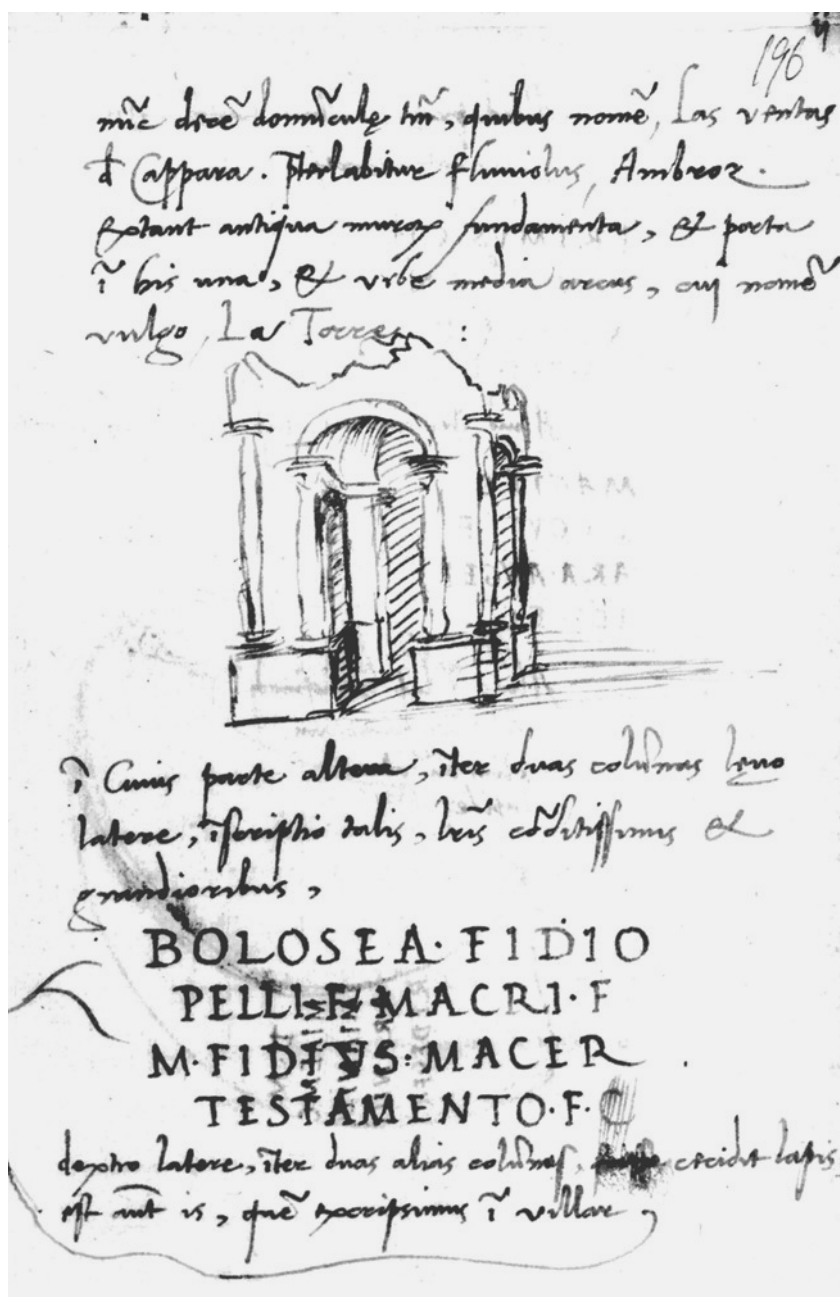 196
nūc decē domūculę tm̄, quibus nomē, Las ventas
đ Cappara. p̄terlabitur fluviolus, Ambroz.
extant antiqua muroꝝ fundamenta, & porta
ī his una, & urbe media arcus, cui nomē
vulgo, La Torre :
ī Cuius parte altera, īter duas colūnas lęvo
latere, īscriptio talis, lr̄is cōditissimis &
grandioribus,
BOLOSEA · FIDIO
PELLI · F · MACRI · F
M · FIDIVS · MACER
TESTAMENTO · F · C
dextro latere, īter duas alias colūnas, cecidit lapis
est aūt is, quē excripsimus ī villar,